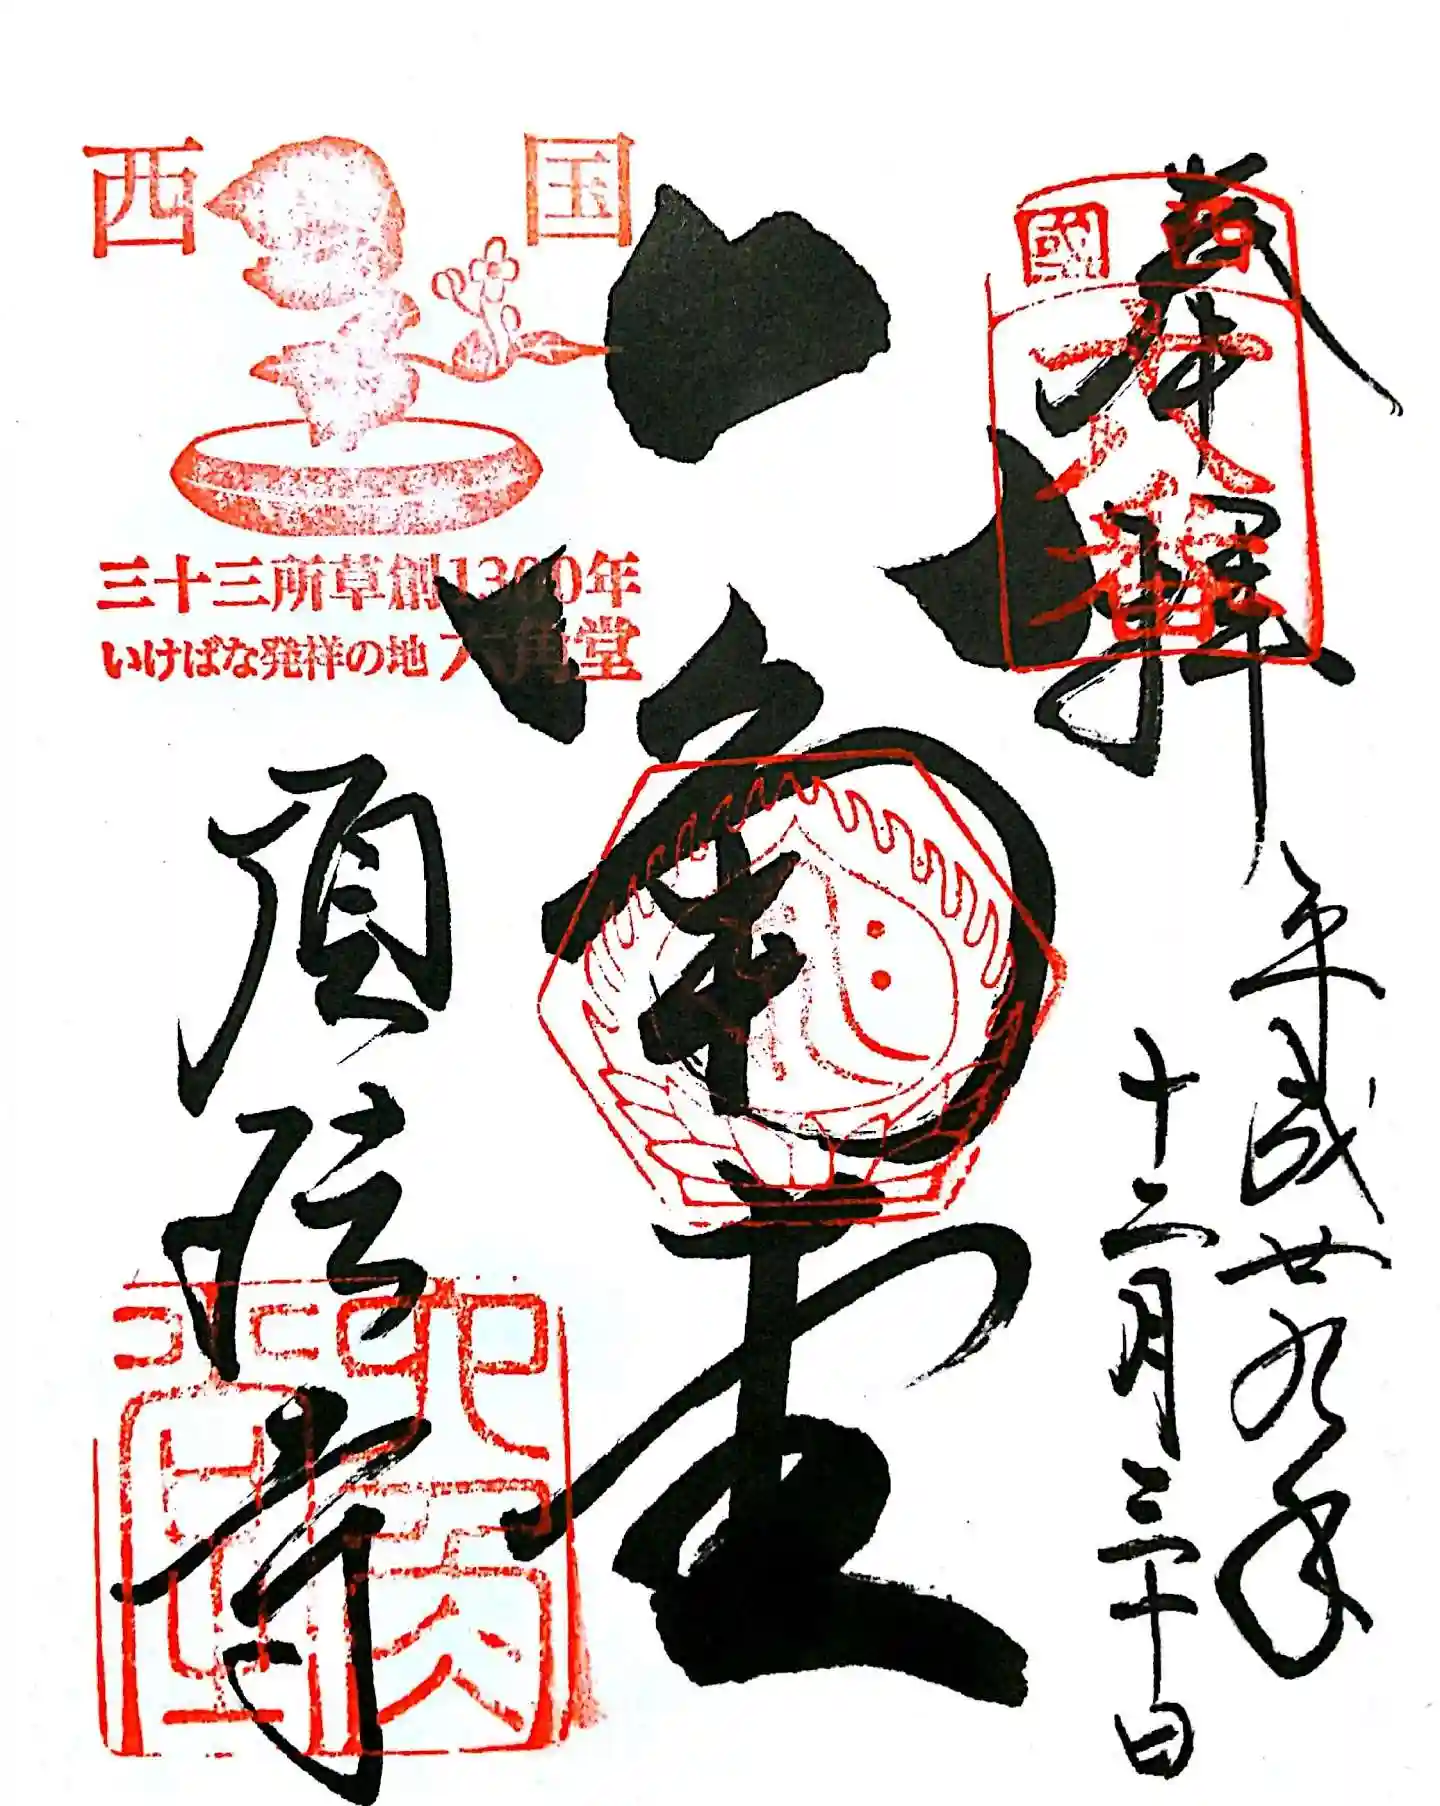 奉拝
西國
十八番
平成廿九年
十二月三十日
六角堂
西国
三十三所草創1300年
いけばな発祥の地 六角堂
頂法寺